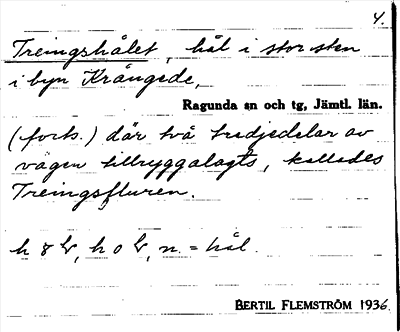 4.
Treingshålet, hål i stor sten
i byn Krångede,
Ragunda sn och tg, Jämtl. län.
(forts.) där två tredjedelar av
vägen tillryggalagts, kallades
Treingsfluren.
h, n. = hål.
BERTIL FLEMSTRÖM 1936.